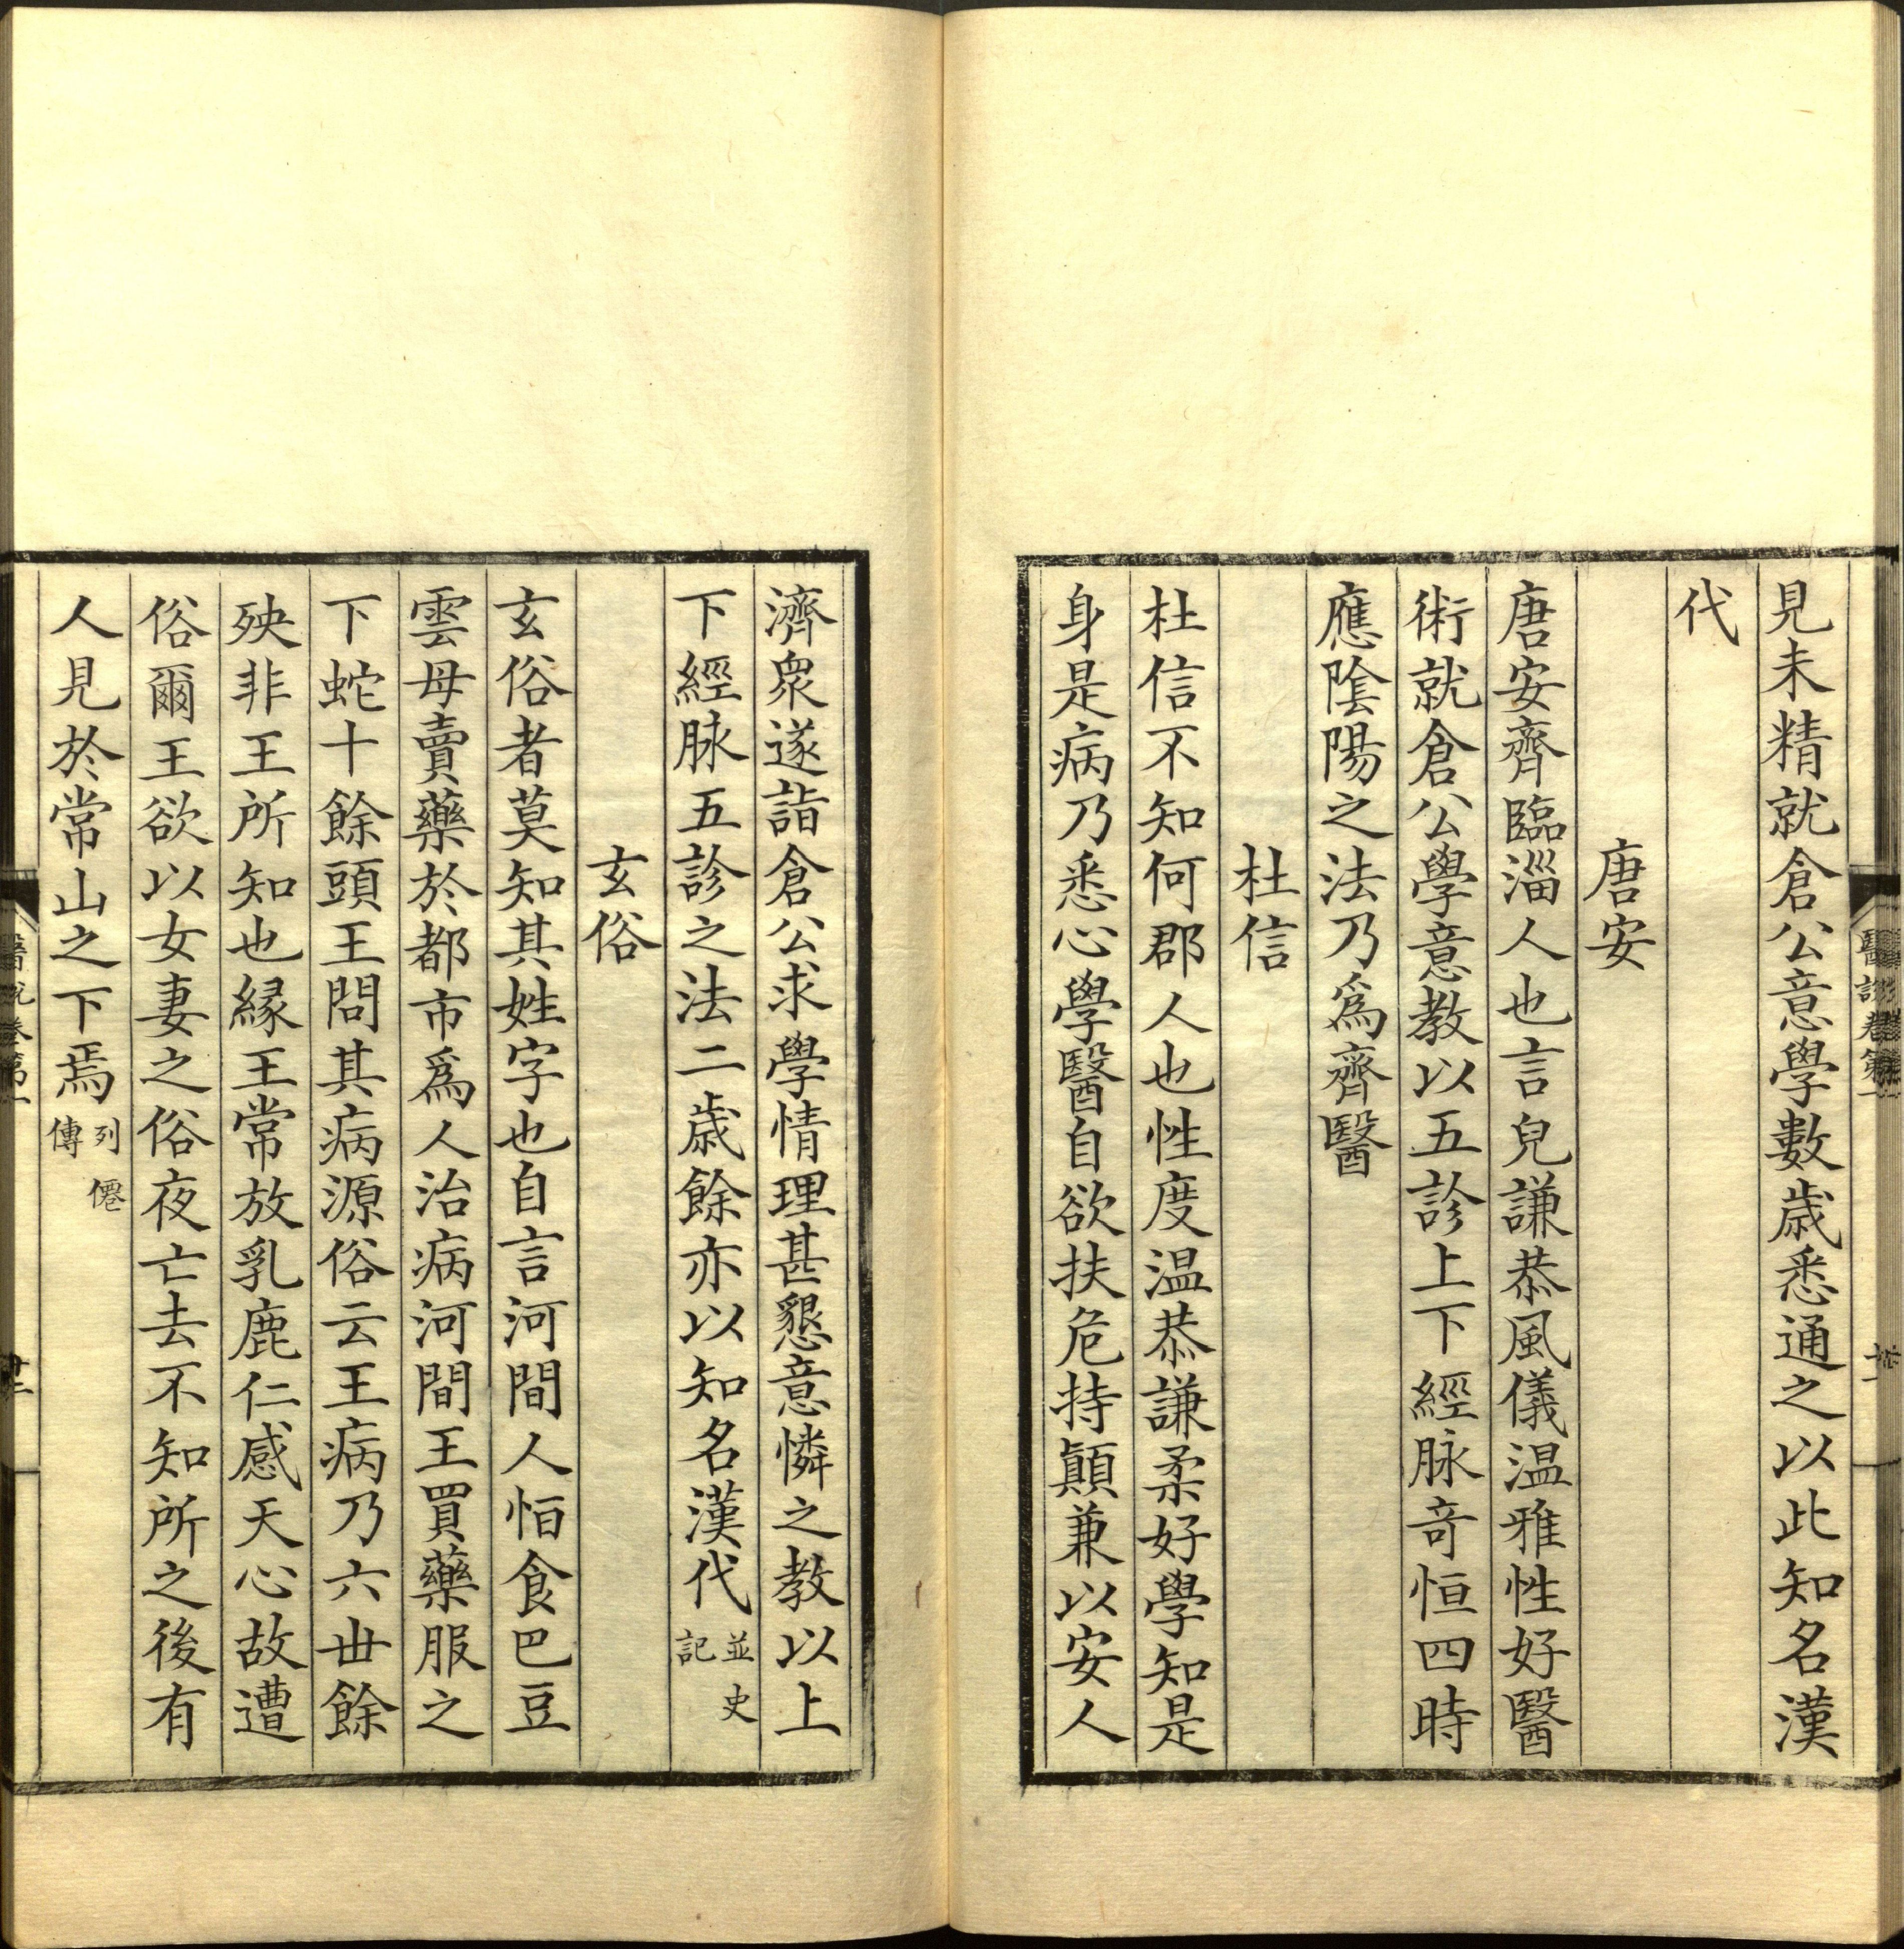 見未精就倉公意學數歳悉通之以此知名漢
代
唐安
唐安齊臨淄人也言皃謙恭風儀温雅性好醫
術就倉公學意教以五診上下經脉竒恒四時
應陰陽之法乃爲齊醫
杜信
杜信不知何郡人也性度温恭謙柔好學知是
身是病乃悉心學醫自欲扶危持顛兼以安人
濟衆遂詣倉公求學情理甚懇意憐之教以上
下經脉五診之法二歳餘亦以知名漢代並史記
玄俗
玄俗者莫知其姓字也自言河間人恒食巴豆
雲母賣藥於都市爲人治病河間王買藥服之
下蛇十餘頭王問其病源俗云王病乃六丗餘
殃非王所知也縁王常放乳鹿仁感天心故遭
俗爾王欲以女妻之俗夜亡去不知所之後有
人見於常山之下焉列僊傳
醫說卷第一